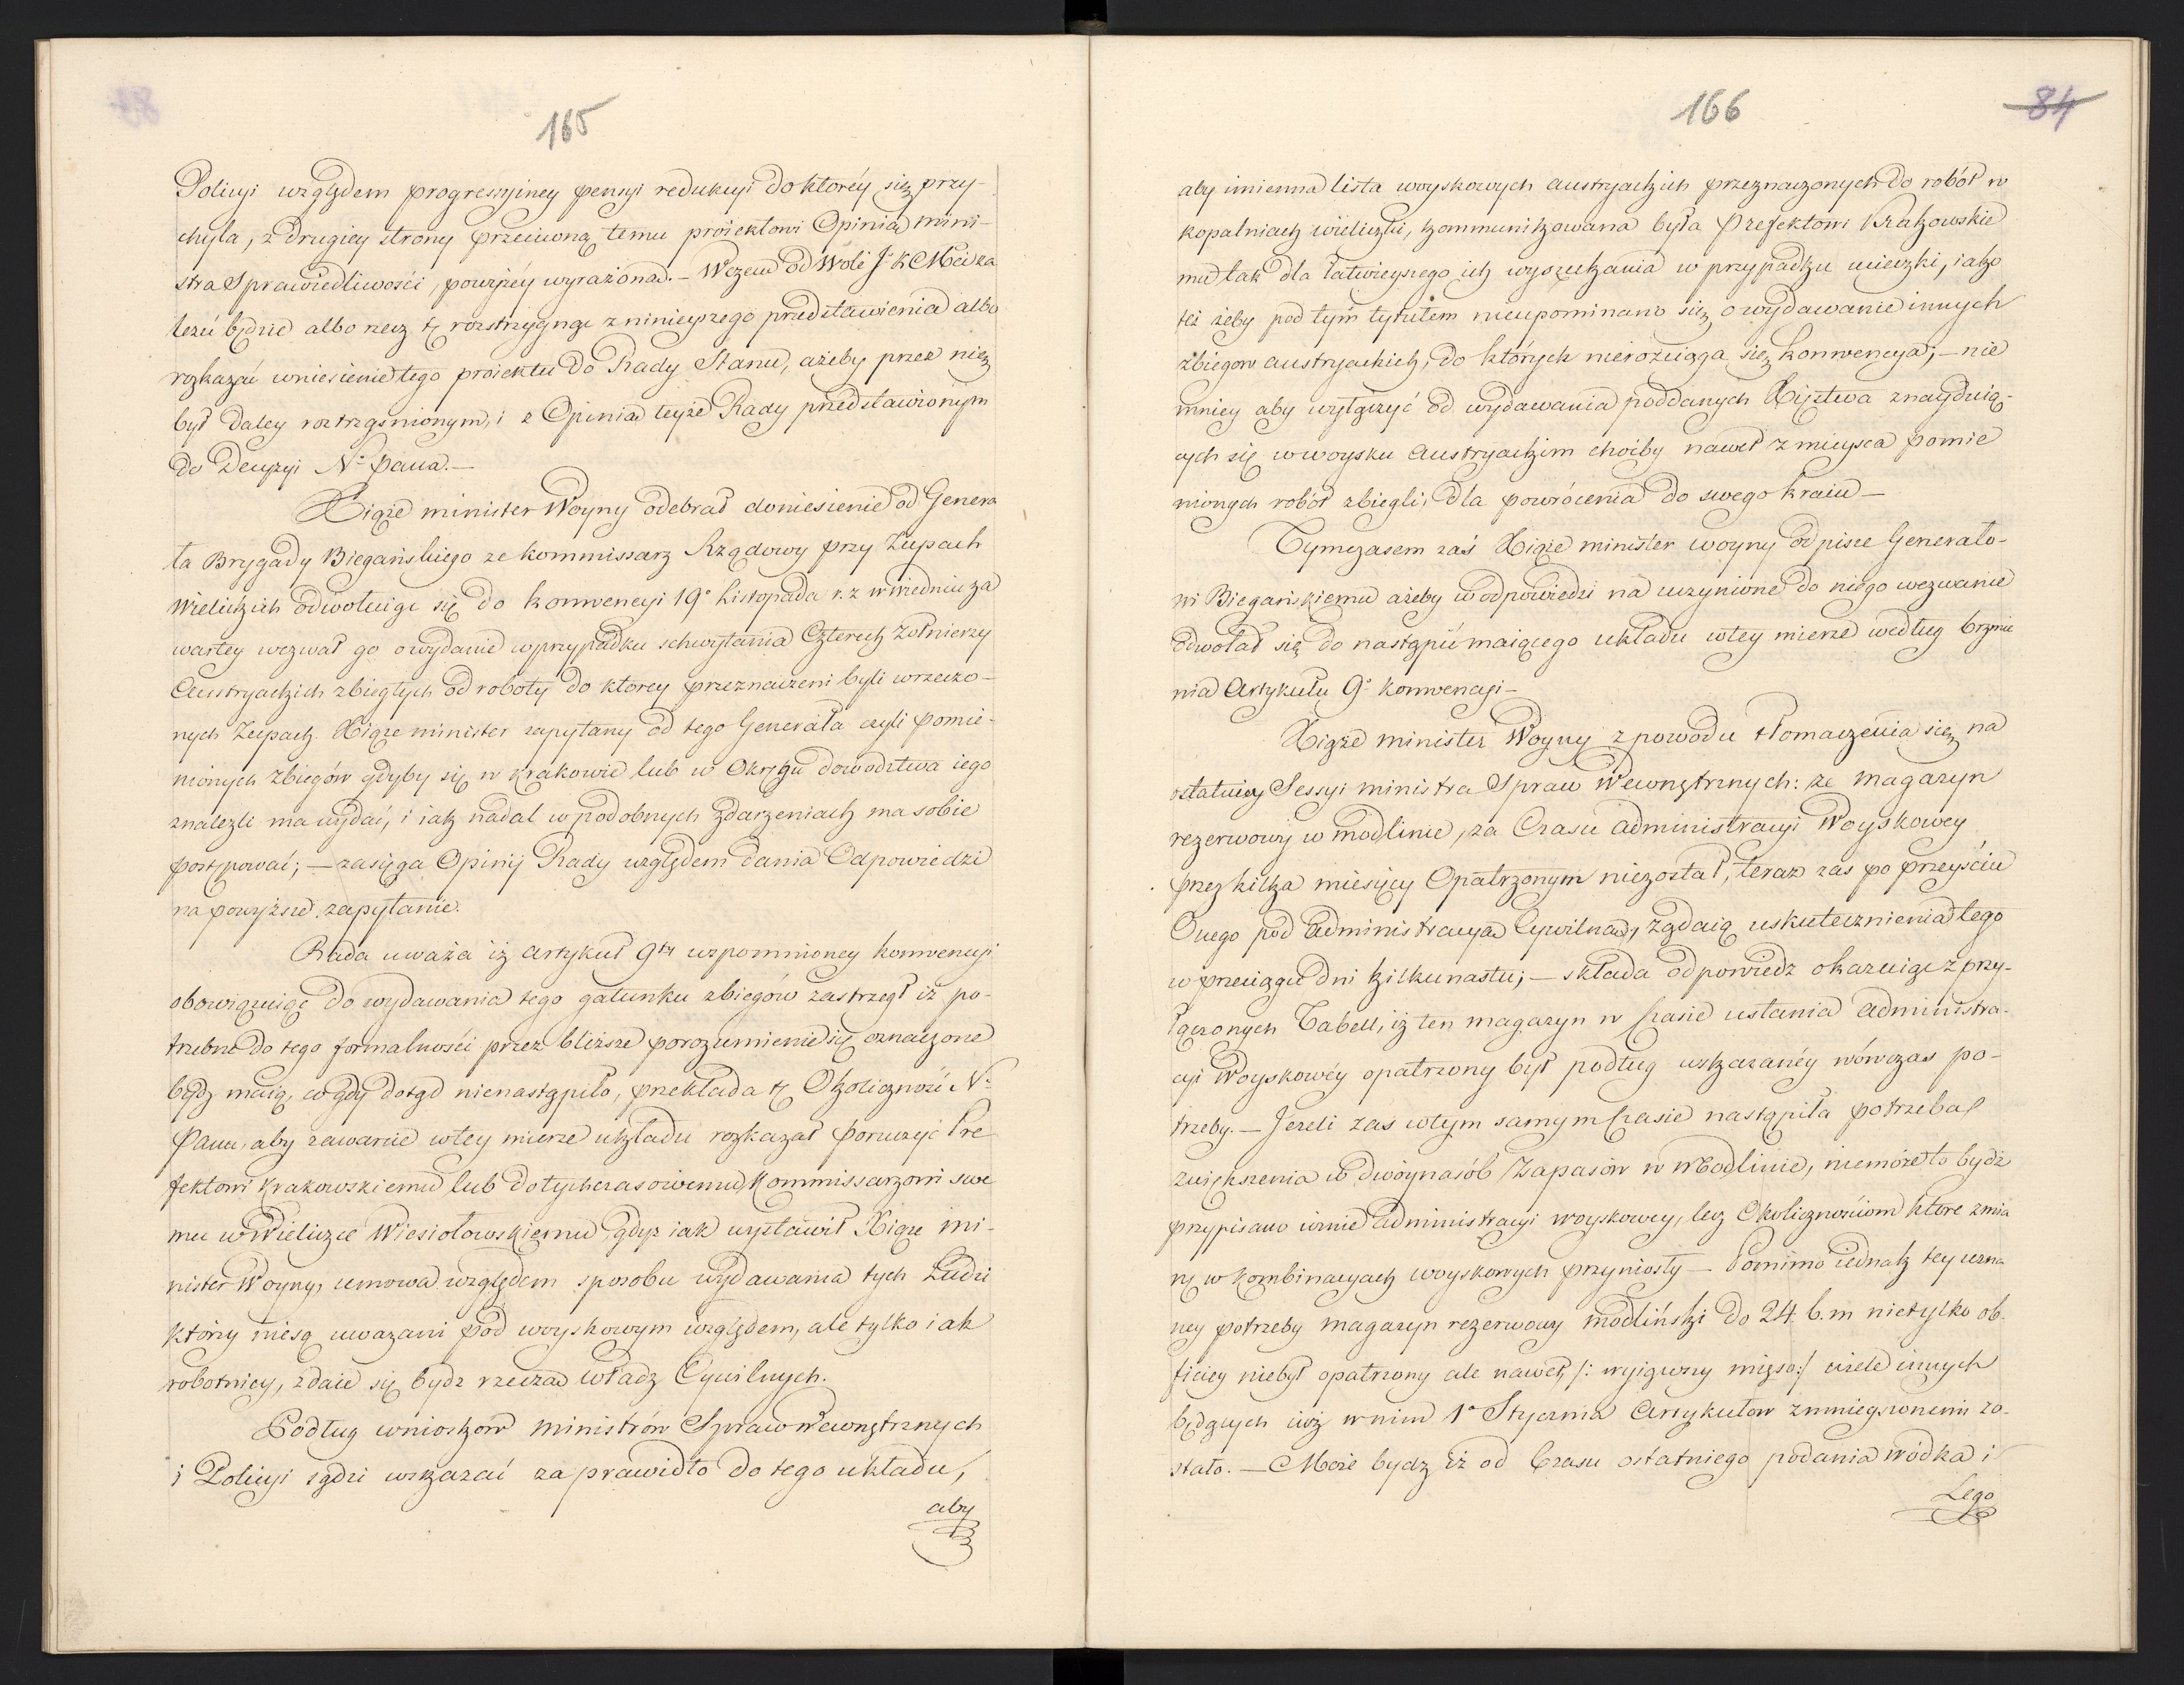 165
Policyi względem progressyiney pensyi redukcyi do którey się przy-
chyla, z drugiey strony przeciwną temu proiektowi Opinią mini-
stra Sprawiedliwości, powyżéy wyrażoną. — W czem od Woli J. K Mci za
leżeć będzie albo rzecz tę rozstrzygnąć z ninieyszego przedstawienia albo
rozkazać wniesienie tego proiektu do Rady Stanu, ażeby przez nię
był daley roztrząsnionym, i z Opinią teyże Rady przedstawionym
do Decyzyi N° Pana. —
Xiąże minister Woyny odebrał doniesienie od Genera
ła Brygady Biegańskiego ze kommissarz Rządowy przy Żupach
Wielickich odwołuiąc się do konwencyi 19° Listopada r. z w Wiedniu za
wartey wezwał go o wydanie w przypadku schwytania Czterech Żołnierzy
Austryackich zbiegłych od roboty do ktorey przeznaczeni byli w rzeczo-
nych Żupach. Xiąże minister zapytany od tego Generała czyli pomie-
nionych zbiegów gdyby się w Krakowie lub w Okręgu dowodztwa iego
znalezli ma wydać, i iak nadal w podobnych zdarzeniach ma sobie
postępować; — zasięga Opinij Rady względem dania Odpowiedzi
na powyższe zapytanie.
Rada uważa iż artykuł 9ty wspomnioney konwencyi
obowiązuiąc do wydawania tego gatunku zbiegów zastrzegł iż po-
trzebne do tego formalności przez bliższe porozumienie się oznaczone
bydź maią, co gdy dotąd nienastąpiło, przekłada tę Okoliczność N°
Panu, aby zawarcie w tey mierze układu rozkazał poruczyć Pre
fektowi Krakowskiemu lub dotychczasowemu Kommissarzowi swe
mu w Wieliczce Wiesiołowskiemu, gdyż iak wystawił Xiąże mi-
nister Woyny, umowa względem sposobu wydawania tych Ludzi
którzy niesą uważani pod woyskowym względem, ale tylko iak
robotnicy, zdaie się bydz rzeczą Władz Cywilnych.
Podług wniosków ministrów Spraw Wewnętrznych
i Policyi sądzi wskazać za prawidło do tego układu,
aby
166
84
aby imienna lista woyskowych austryackich przeznaczonych do robót w
kopalniach wieliczki, kommunikowana była Prefektowi Krakowskie
mu tak dla łatwieyszego ich wyszukania w przypadku ucieczki, iako
też żeby pod tym tytułem nieupominano się o wydawanie innych
zbiegow austryackich, do których nierozciąga się konwencya; — nie
mniey aby wyłączyć od wydawania poddanych Xięztwa znayduią-
cych się w woysku Austryackim choćby nawet z mieysca pomie
nionych robót zbiegli, dla powrócenia do swego kraiu —
Tymczasem zaś Xiąże minister woyny odpisze Generało-
wi Biegańskiemu ażeby w odpowiedzi na uczynione do niego wezwanie
odwołał się do nastąpić maiącego układu w tey mierze według brzmie
nia Artykułu 9° konwencyi —
Xiąże minister Woyny z powodu tłomaczenia się na
ostatniey Sessyi ministra Spraw Wewnętrznych: że magazyn
rezerwowy w modlinie, za Czasu administracyi Woyskowey
przez kilka miesięcy Opatrzonym niezostał, teraz zas po przeyściu
Onego pod administracyą Cywilną, żądaią uskutecznienia tego
w przeciągu dni kilkunastu; — składa odpowiedz okazuiąc z przy-
łączonych Tabell, iż ten magazyn w Czasie ustania administra-
cyi Woyskowéy opatrzony był podług wskazanéy wówczas po-
trzeby. — Jeżeli zas w tym samym Czasie nastąpiła potrzeba
zwiększenia w dwóynasób Zapasów w Modlinie, niemoże to bydź
przypisano winie administracyi woyskowey, lecz Okolicznościom które zmia
nę w kombinacyach woyskowych przyniosły — Pomimo iednak tey uzna
ney potrzeby magazyn rezerwowy modliński do 24. b. m nietylko ob-
ficiey niebył opatrzony ale nawet /: wyiąwszy mięso :/ wiele innych
będących iuż w nim 1° Stycznia Artykułów zmnieyszonemi zo-
stało. — Może bydz iż od Czasu ostatniego podania wódka i
Lego